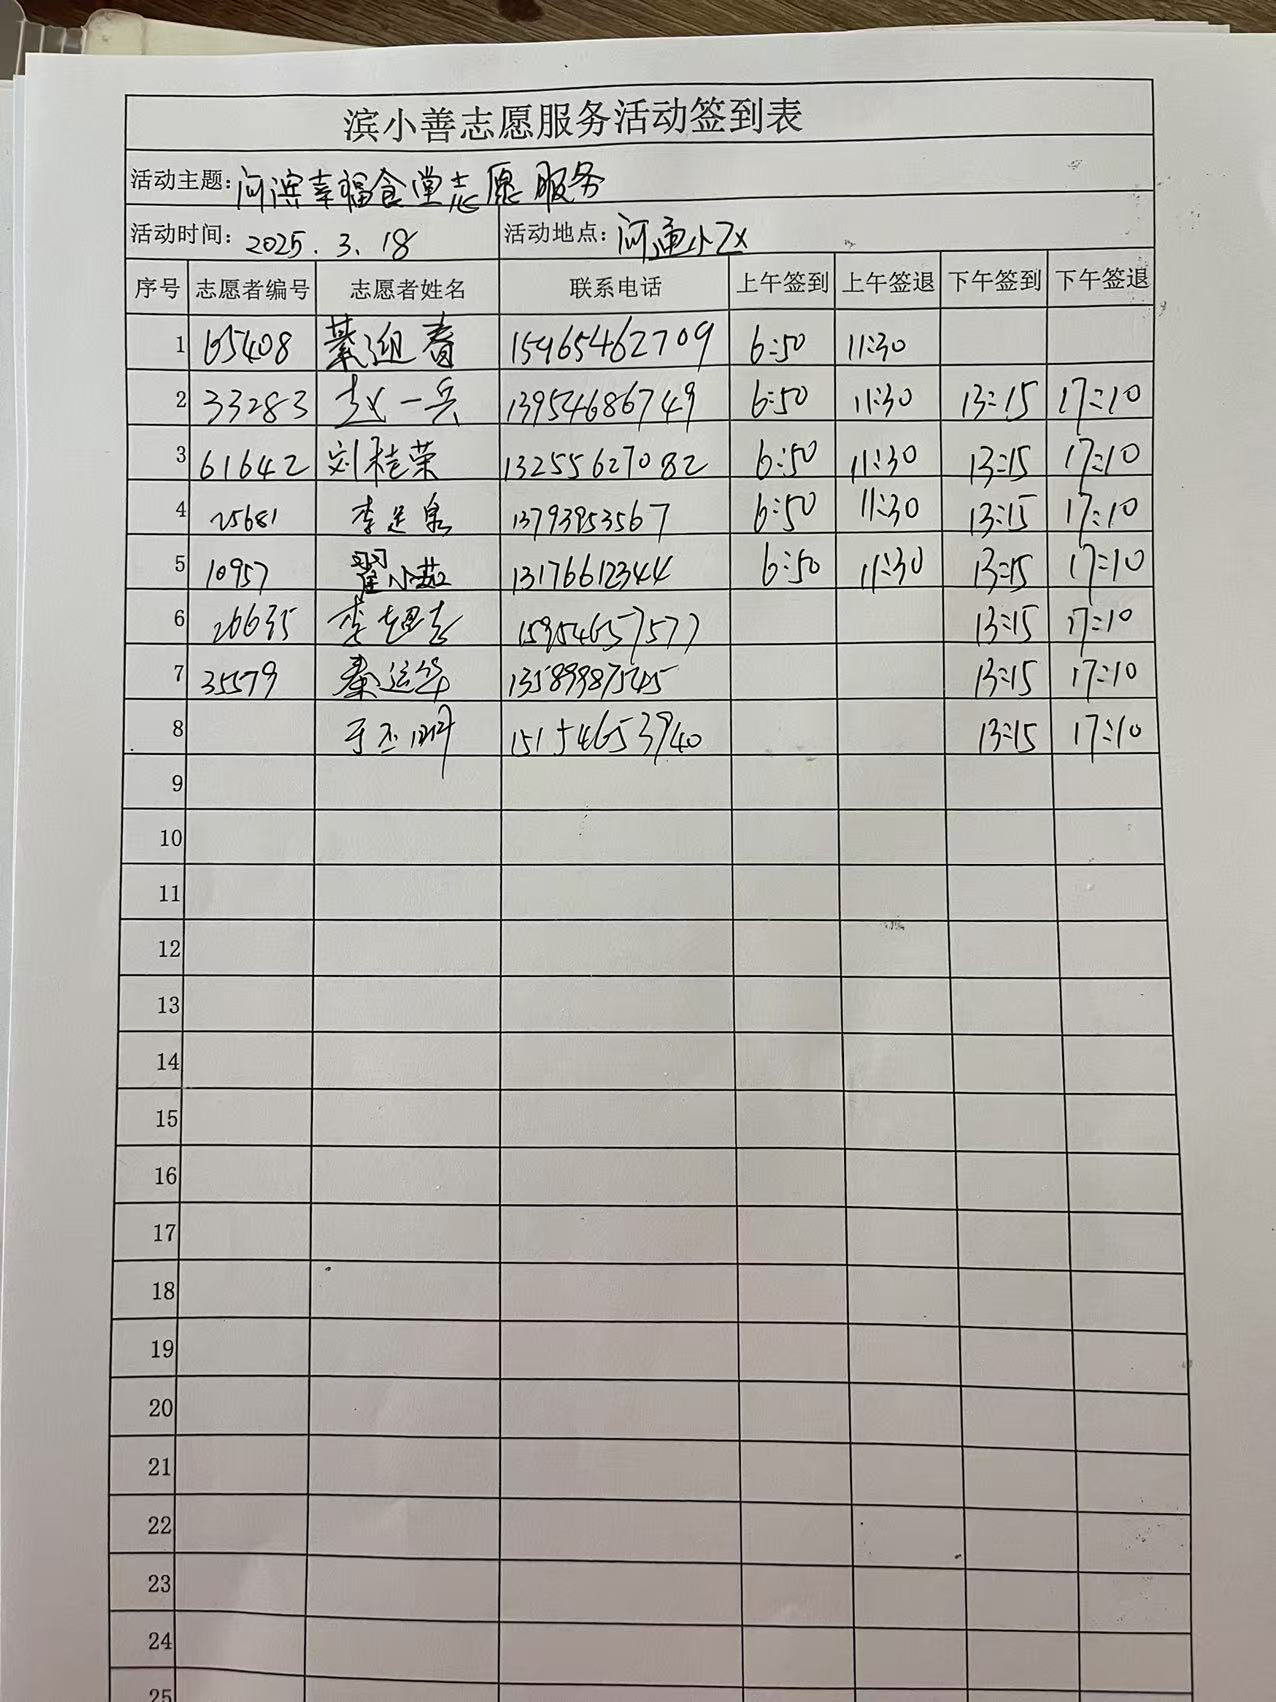 滨小善志愿服务活动签到表
活动主题: 河滨幸福食堂志愿服务
活动时间: 2025.3.18 活动地点: 河滨小区
序号 志愿者编号 志愿者姓名 联系电话 上午签到 上午签退 下午签到 下午签退
1 65408 綦迎春 15965462709 6:50 11:30
2 33283 赵一兵 13954686749 6:50 11:30 13:15 17:10
3 61642 刘桂荣 13255627082 6:50 11:30 13:15 17:10
4 25681 李足泉 13793953567 6:50 11:30 13:15 17:10
5 10957 翟小茹 13176612344 6:50 11:30 13:15 17:10
6 26635 李超志 15954657577 13:15 17:10
7 35579 秦运华 13589987545 13:15 17:10
8 15154653940 13:15 17:10
9
10
11
12
13
14
15
16
17
18
19
20
21
22
23
24
25